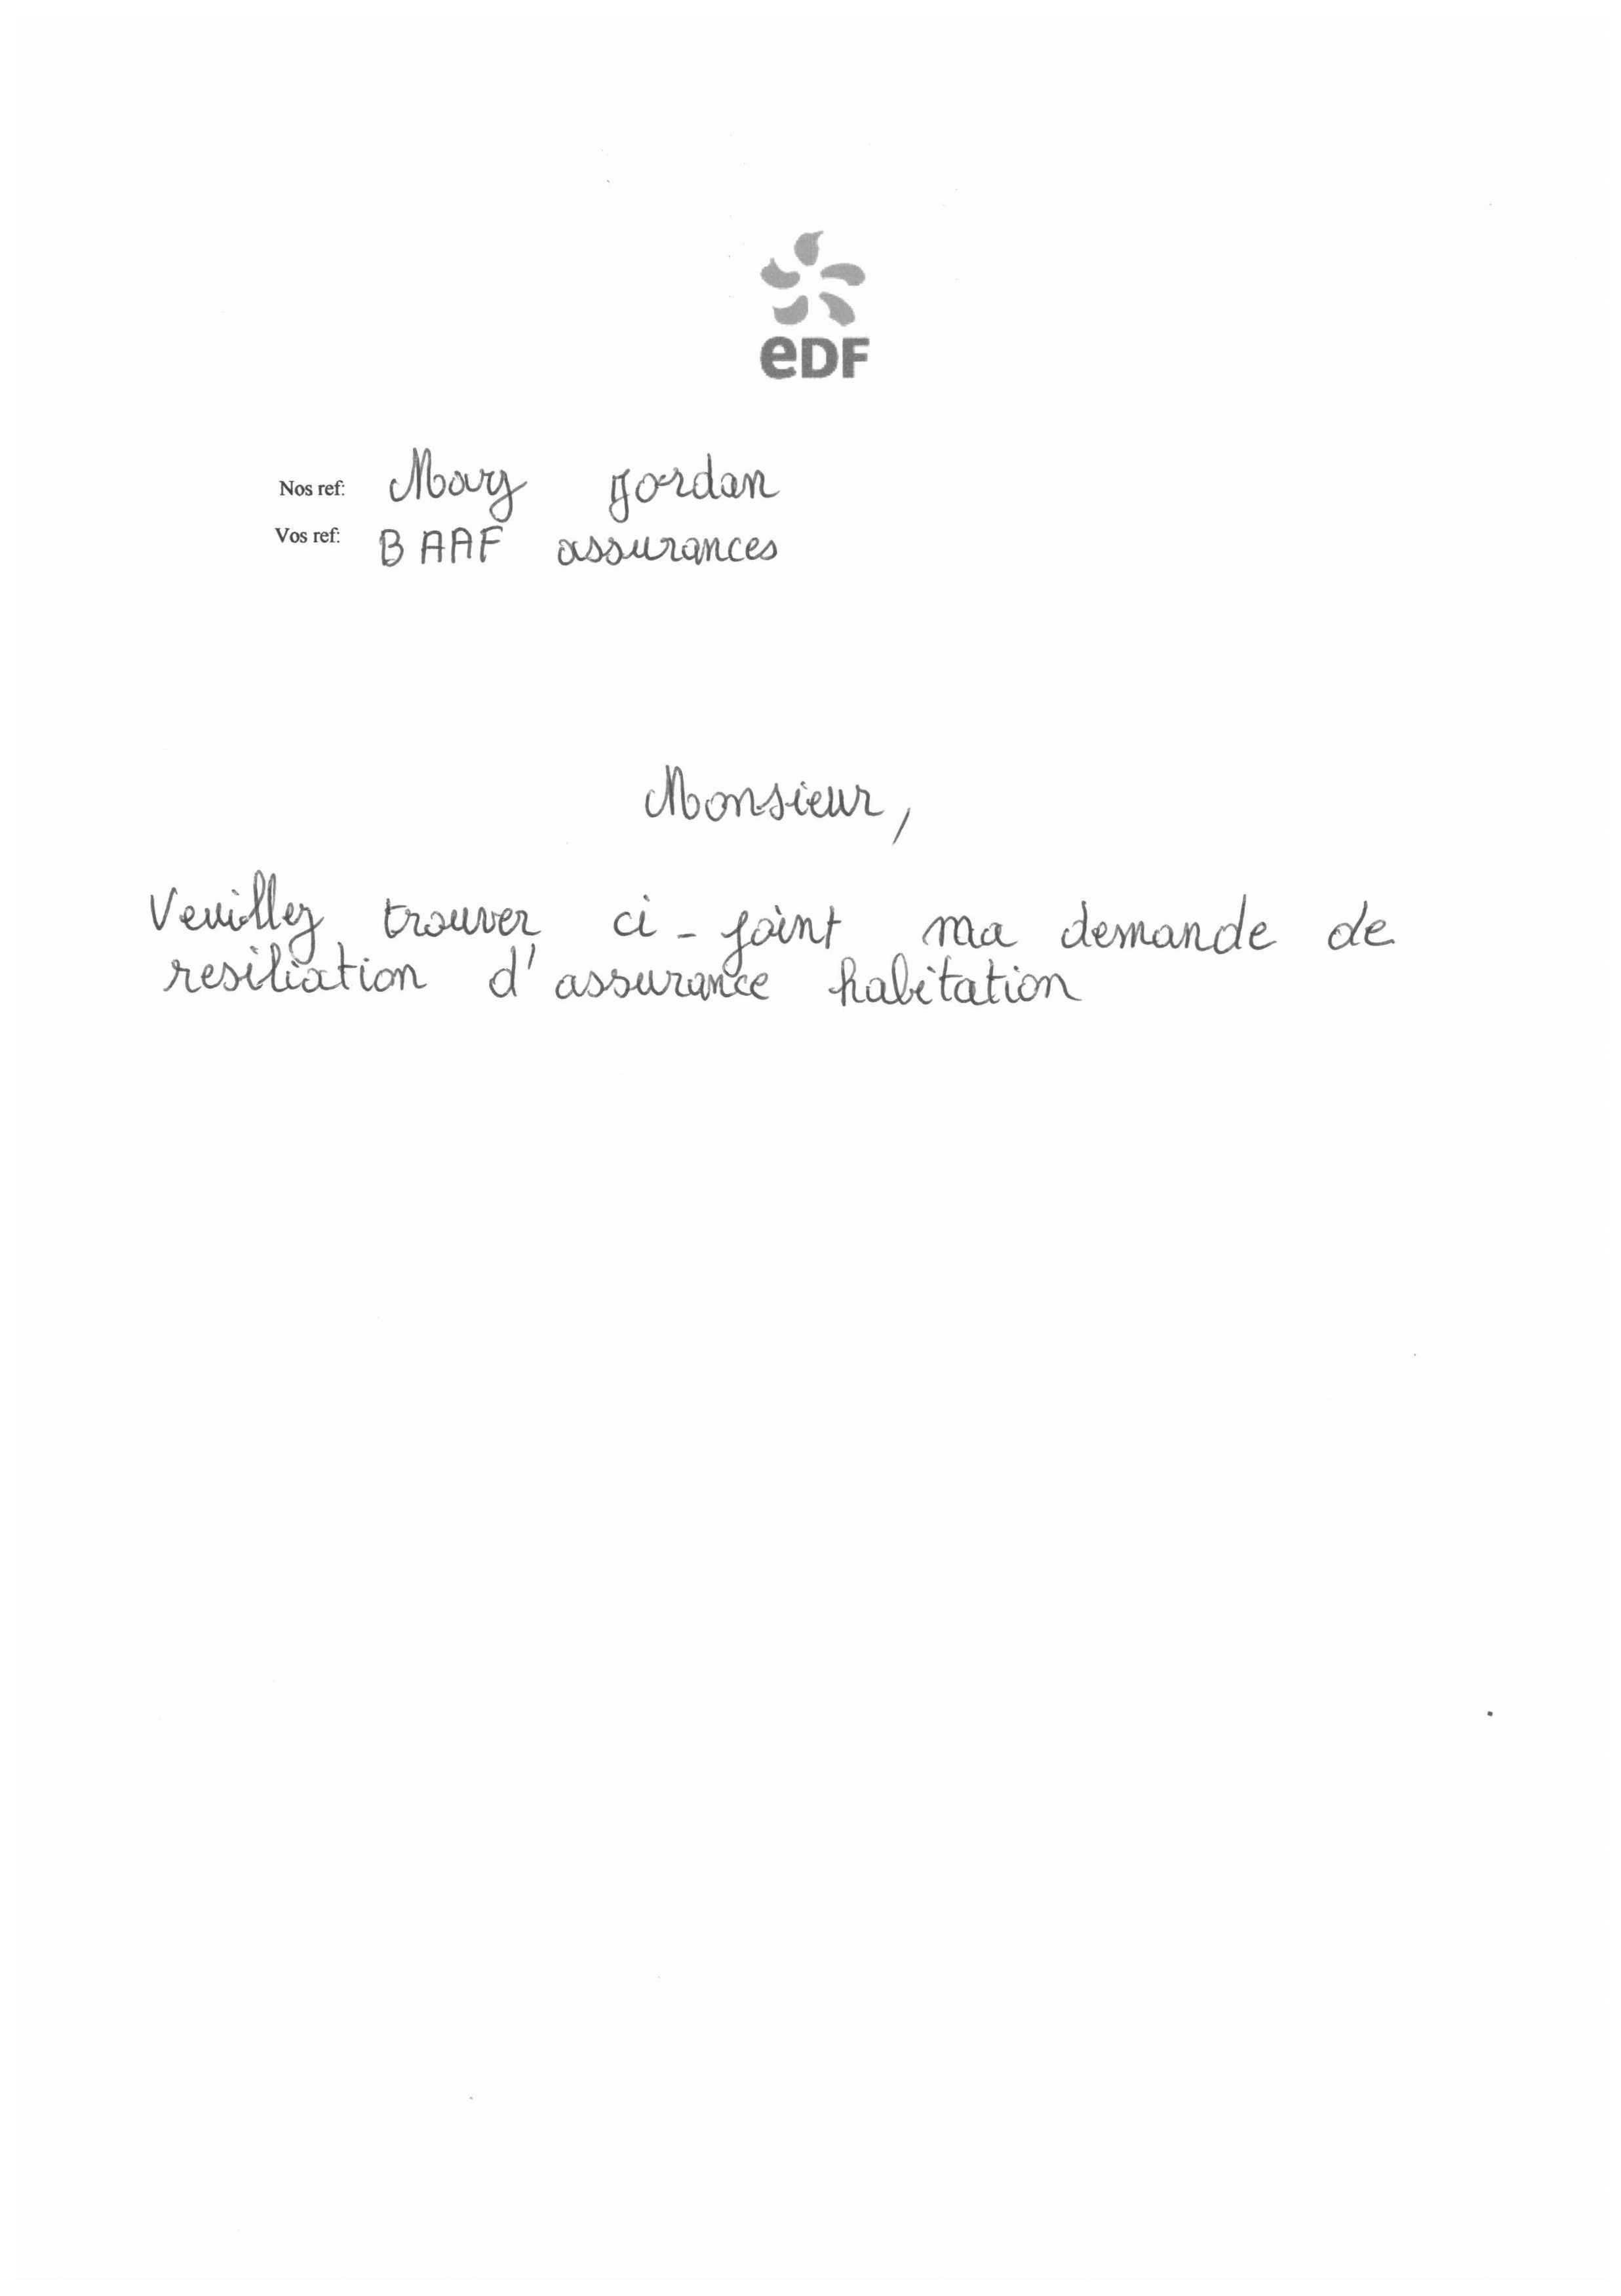 eDF
Nos ref: Mary Jordan
Vos ref: BAAF assurances
Monsieur,
Veuillez trouver ci-joint ma demande de
resiliation d'assurance habitation